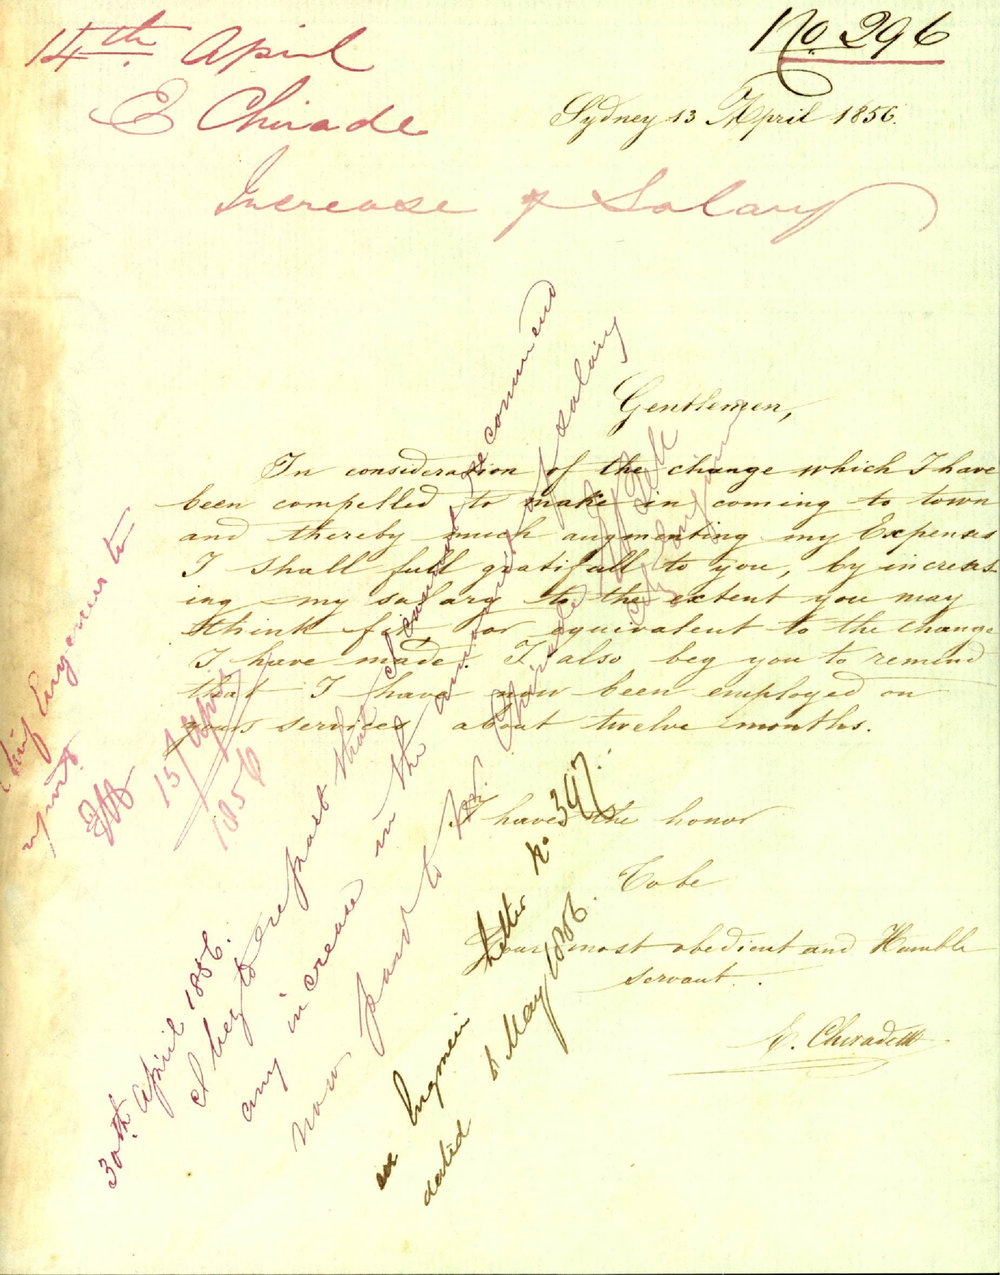 14th April
No. 296
E Chirade
Sydney 13 April 1856.
Increase of Salary
Gentlemen,
In consideration of the change which I have
been compelled to make in coming to town
and thereby much augmenting my Expenses
I shall full gratifull to you, by increas-
ing my salary to the extent you may
think fit or equivalent to the change
I have made. I also beg you to remind
that I have now been employed on
your services about twelve months.
I have the honor
To be
Your most obedient and Humble
servant.
E. Chiradelli
Engineer to
report
15/April/
1856
30th April 1856.
I beg to report that I cannot recommend
any increase in the amount of salary
now paid to Mr. Chirade
Engineer
letter No 397.
dated 1 May 1856.